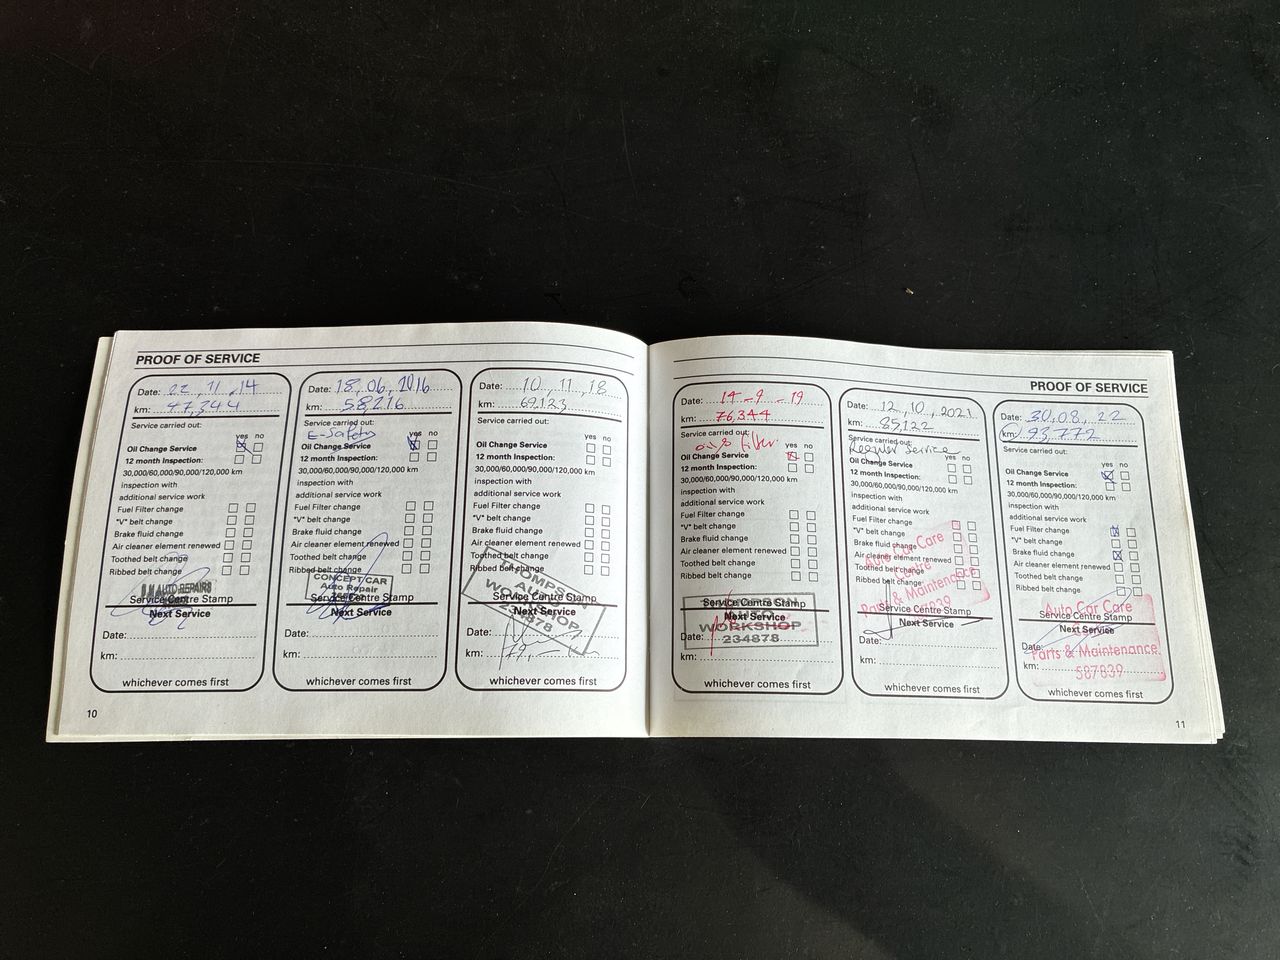 PROOF OF SERVICE
Date: 22, 11, 14
km: 47,344
Service carried out:
yes no
Oil Change Service
12 month Inspection:
30,000/60,000/90,000/120,000 km
inspection with
additional service work
Fuel Filter change
"V" belt change
Brake fluid change
Air cleaner element renewed
Toothed belt change
Ribbed belt change
AUTO REPAIRS
Service Centre Stamp
Next Service
Date:
km:
whichever comes first
Date: 18, 06, 2016
km: 58,216
Service carried out:
E-Safety
yes no
Oil Change Service
12 month Inspection:
30,000/60,000/90,000/120,000 km
inspection with
additional service work
Fuel Filter change
"V" belt change
Brake fluid change
Air cleaner element renewed
Toothed belt change
Ribbed belt change
CONCEPT CAR
Auto Repair
Service Centre Stamp
Next Service
Date:
km:
whichever comes first
Date: 10, 11, 18
km: 69,123
Service carried out:
yes no
Oil Change Service
12 month Inspection:
30,000/60,000/90,000/120,000 km
inspection with
additional service work
Fuel Filter change
"V" belt change
Brake fluid change
Air cleaner element renewed
Toothed belt change
Ribbed belt change
THOMPSON
AUTO
WORKSHOP
234878
Service Centre Stamp
Next Service
Date:
km:
whichever comes first
10
PROOF OF SERVICE
Date: 14-9-19
km: 76,344
Service carried out:
oil & filter
yes no
Oil Change Service
12 month Inspection:
30,000/60,000/90,000/120,000 km
inspection with
additional service work
Fuel Filter change
"V" belt change
Brake fluid change
Air cleaner element renewed
Toothed belt change
Ribbed belt change
Service Centre Stamp
THOMPSON
AUTO
WORKSHOP
234878
Next Service
Date:
km:
whichever comes first
Date: 12, 10, 2021
km: 85,122
Service carried out:
Regular Service
yes no
Oil Change Service
12 month Inspection:
30,000/60,000/90,000/120,000 km
inspection with
additional service work
Fuel Filter change
"V" belt change
Brake fluid change
Air cleaner element renewed
Toothed belt change
Ribbed belt change
Auto Car Care
Centre
Parts & Maintenance
587839
Service Centre Stamp
Next Service
Date:
km:
whichever comes first
Date: 30, 08, 22
km: 93,772
Service carried out:
yes no
Oil Change Service
12 month Inspection:
30,000/60,000/90,000/120,000 km
inspection with
additional service work
Fuel Filter change
"V" belt change
Brake fluid change
Air cleaner element renewed
Toothed belt change
Ribbed belt change
Auto Car Care
Service Centre Stamp
Next Service
Date:
Parts & Maintenance
km:
587839
whichever comes first
11